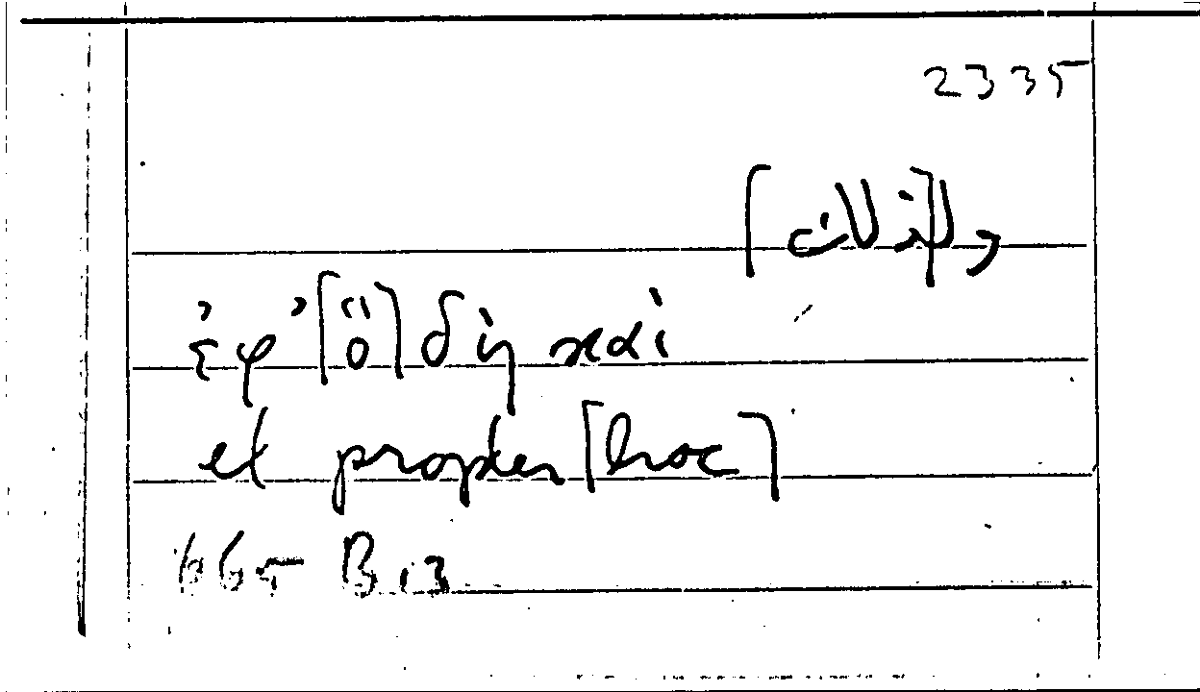 2335
ἐφ' [ὃ] δὴ καὶ
et propter [hoc]
665 B 13